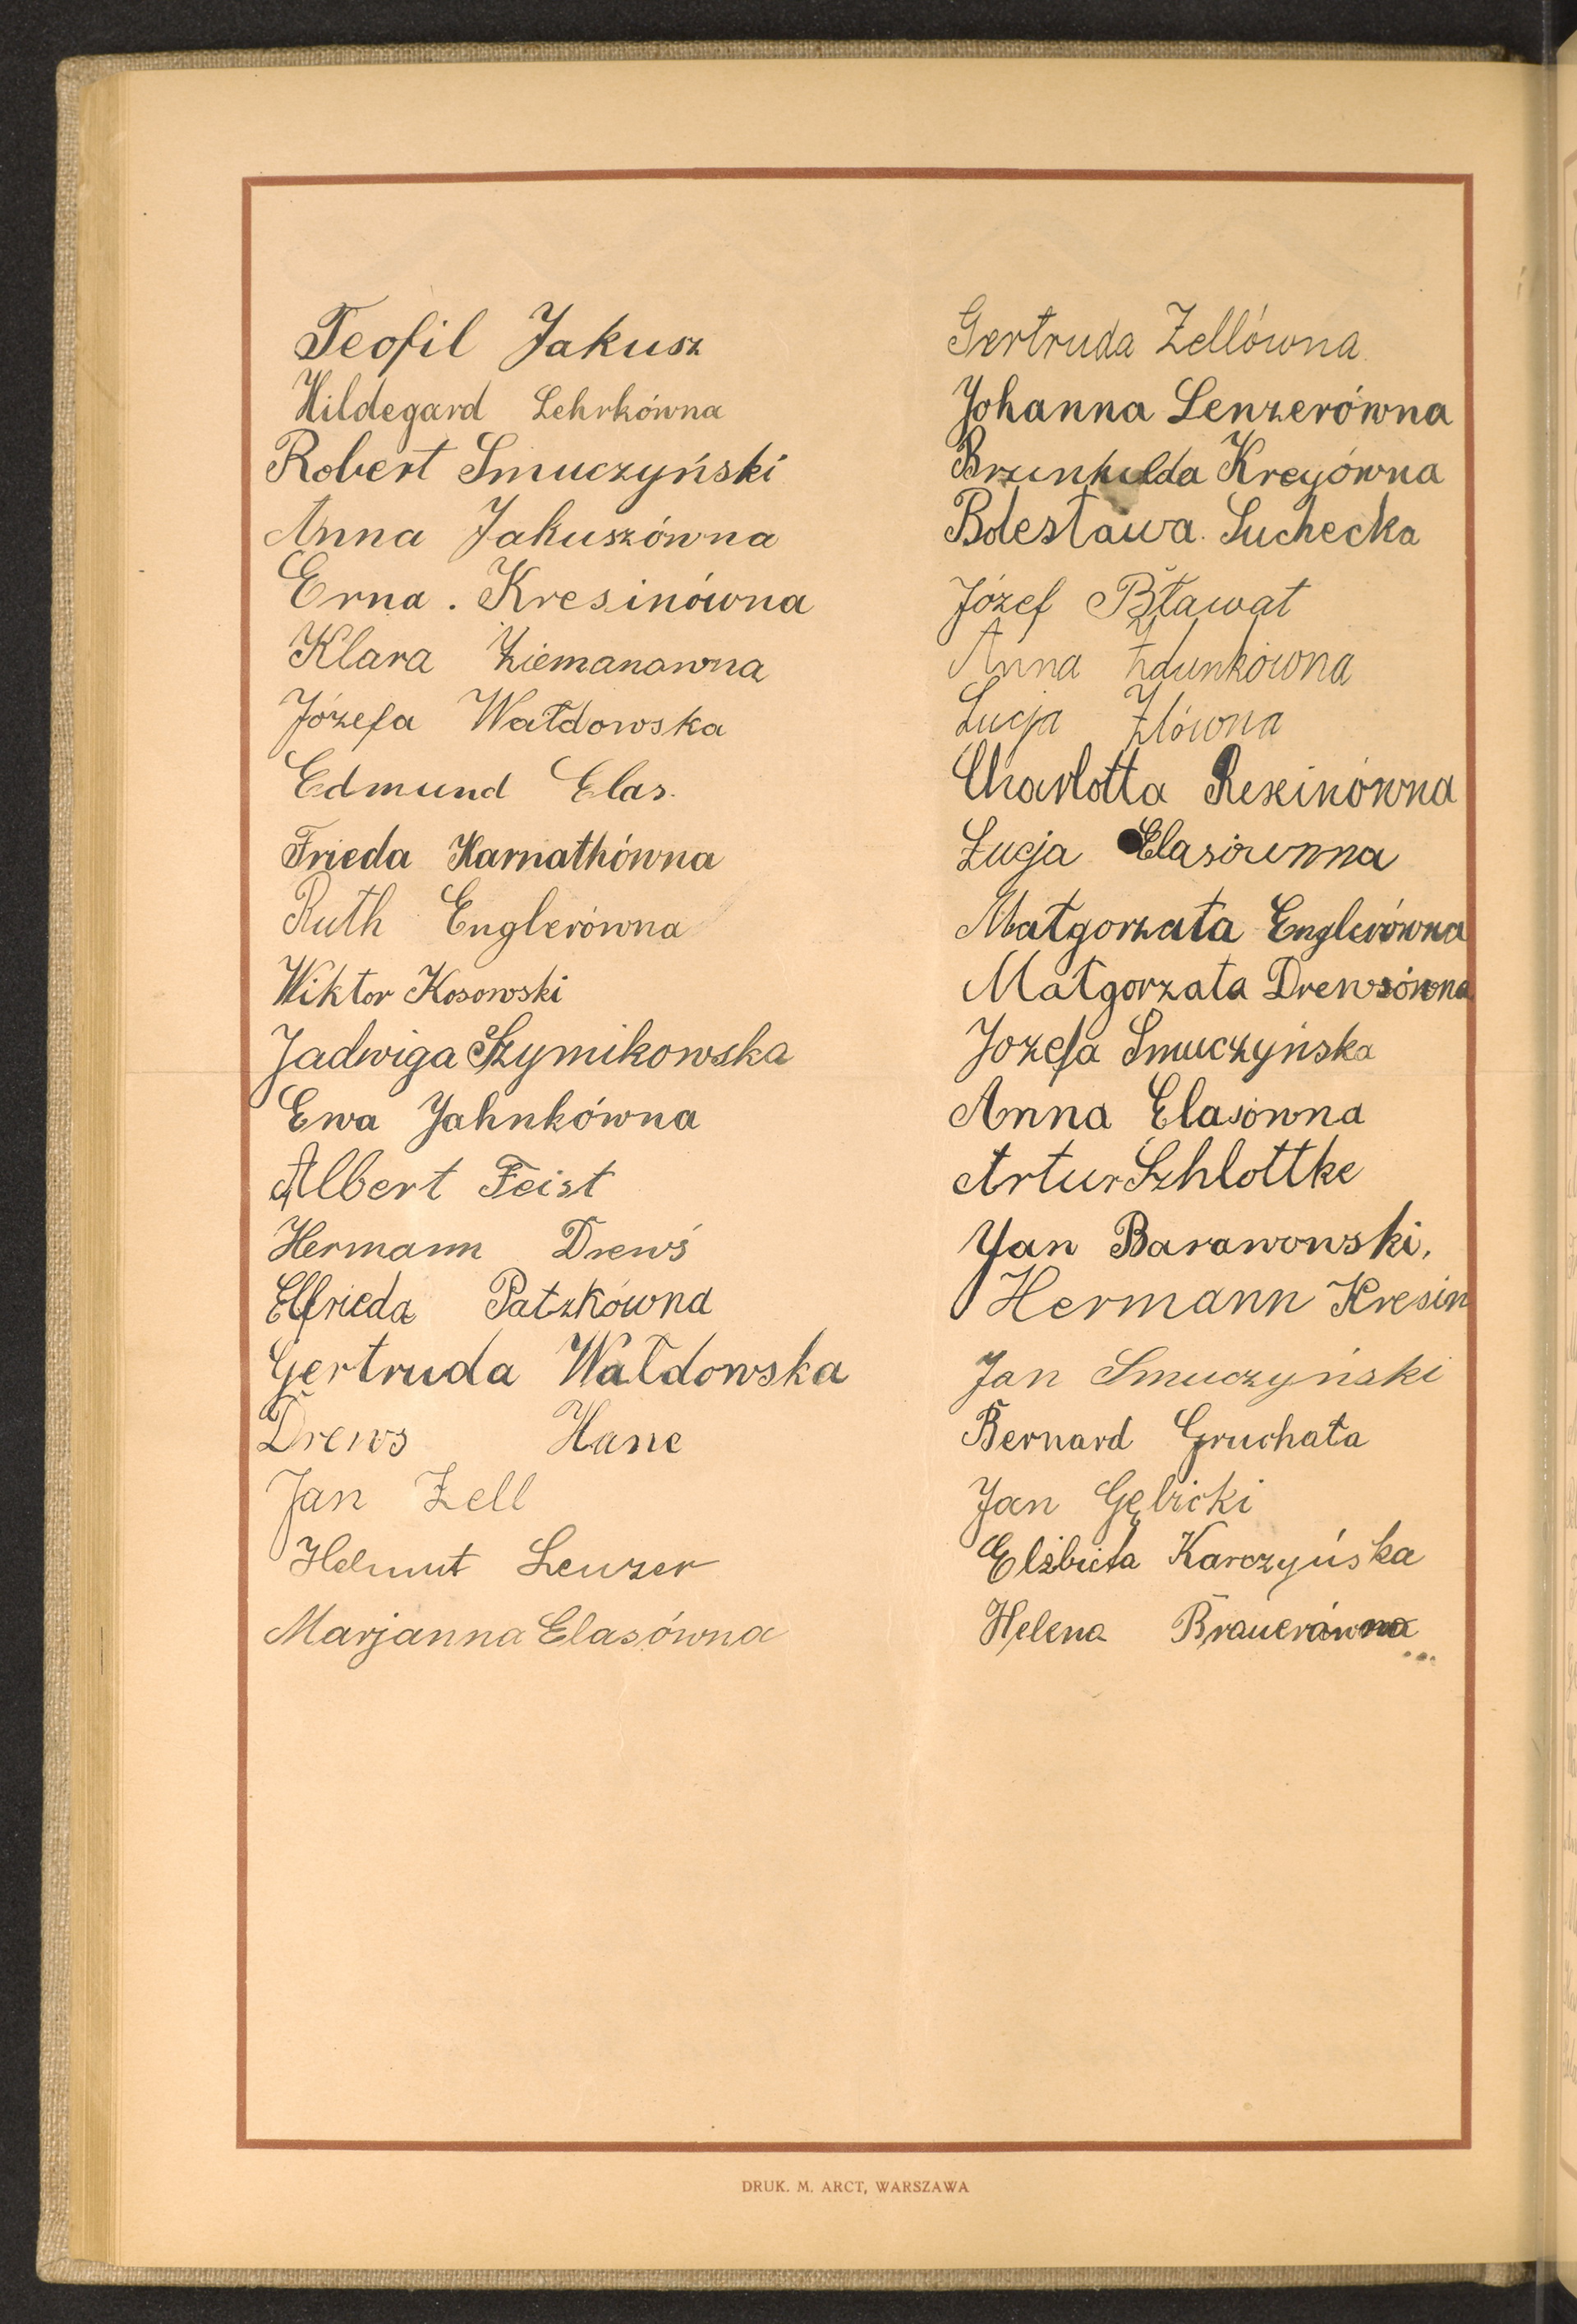 Teofil Jakusz
Hildegard Lehrkówna
Robert Smuczyński
Anna Jakuszówna
Erna . Kresinówna
Klara Ziemanawna
Józefa Wałdowska
Edmund Elas.
Frieda Karnathówna
Ruth Englerówna
Wiktor Kosowski
Jadwiga Szymikowska
Ewa Jahnkówna
Albert Feist
Hermann Drewś
Elfrieda Patzkówna
Gertruda Wałdowska
Drews Hane
Jan Zell
Helmut Lenzer
Marjanna Elasówna
Gertruda Zellówna
Johanna Lenzerówna
Brunhilda Kreyówna
Bolesława Suchecka
Józef Bławat
Anna Zdunkówna
Łucja
Charlotta Rekinówna
Łucja Elasówna
Małgorzata Englerówna
Małgorzata Drewsówna
Jozefa Smuczyńska
Anna Elasówna
Artur Szhlottke
Jan Baranowski,
Hermann Kresin
Jan Smuczyński
Bernard Gruchała
Jan Gębicki
Elżbieta Karczyńska
Helena Brauerówna
DRUK. M. ARCT, WARSZAWA